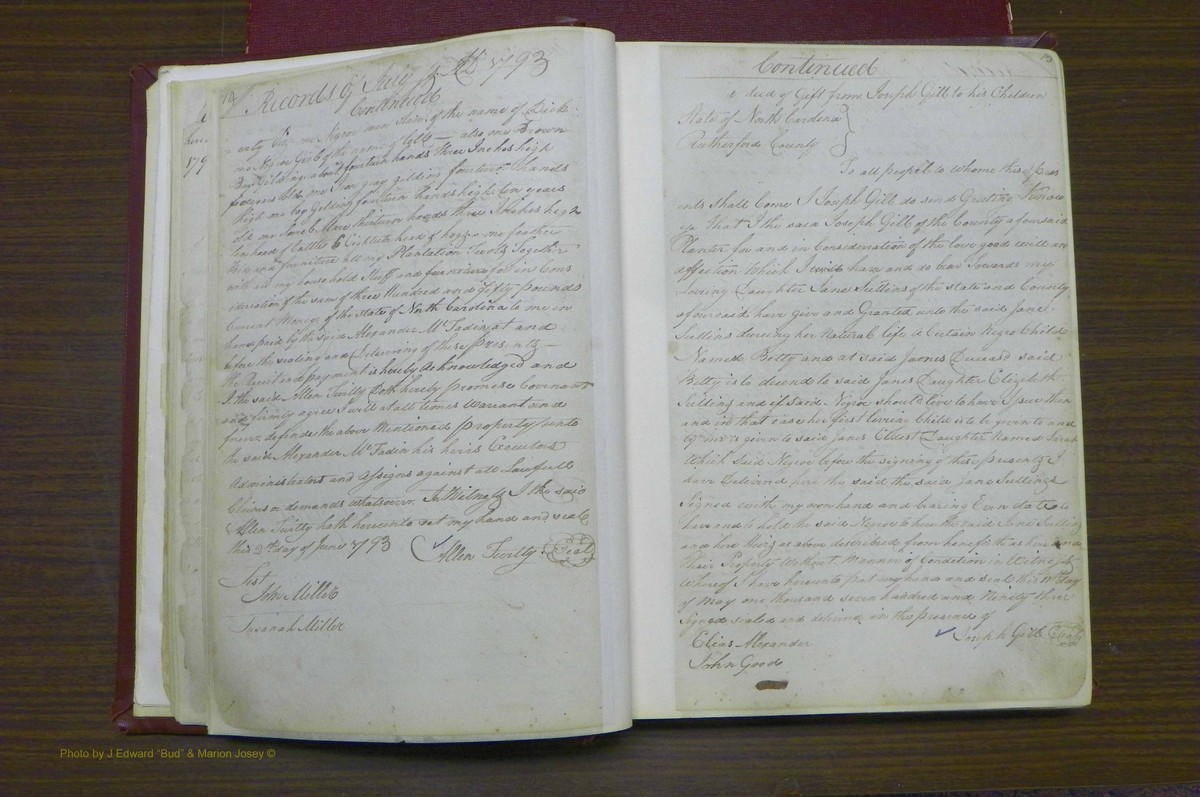 14 Records of July 1793
Continued
one Negro man Slave of the name of Dick
one Negro Girl of the name of — also one Brown
Bay Gelding about fourteen hands three Inches high
one Iron gray gelding fourteen hands
high one bay Gelding fourteen hands high ten years
old one mare thirteen hands three Inches high
head of Cattle & Eighteen head of hogs one feather
Bed and furniture all my Plantation Tools Together
with all my household Stuff and furniture for in Cons
ideration of the sum of three Hundred and fifty pounds
Current Money of the state of North Carolina to me in
hand paid by the said Alexander McFadin at and
before the sealing and Delivering of these presents —
the Receit and payment is hereby Acknowledged and
I the said Allen Twitty doth hereby promise Covenant
and firmly agree I will at all times Warrant and
defend the above Mentioned property unto
the said Alexander McFadin his heirs Executors
Administrators and Assigns against all Lawfull
Claims or demands whatsoever. In Witness I the said
Allen Twitty hath hereunto set my hand and seal
this day of June 1793 Allen Twitty Seal
Test
John Miller
Susanah Miller
Continued
a deed of Gift from Joseph Gill to his Children
State of North Carolina
Rutherford County
To all peopel to whome this pres
ents shall Come I Joseph Gill do send Greting Know
ye that I the said Joseph Gill of the County afoursaid
Planter for and in Consideration of the love good will an
affection Which I have and do bear towards my
loving Daughter Jane Suttins of the state and County
afoursaid have give and Granted unto the said Jane
Suttins during her Natural life a Certain Negro Child
Named Betty and at said Janes said
Betty is to decend to said Janes Daughter Elizebeth
Suttins and if said Negro should live to have Isue then
and in that case her first living Child is to be given to and
is given to said Janes Eldest Daughter Named Sarah
Which said Negro before the signing of this presents I
have Delivered the said the said Jane Suttins
Signed with my own hand and bearing Even date to
have and to hold the said Negro to her the said Jane Suttins
and her Heirs as above described from hence forth as her and
their Property Without Manner of Condition in Witness
Whereof I have hereunto put my hand and seal this day
of May one thousand seven hundred and Ninety three
signed sealed and deliverd in the presence of
Elias Alexander Joseph Gill Seal
John Good
Photo by J Edward "Bud" & Marion Josey ©